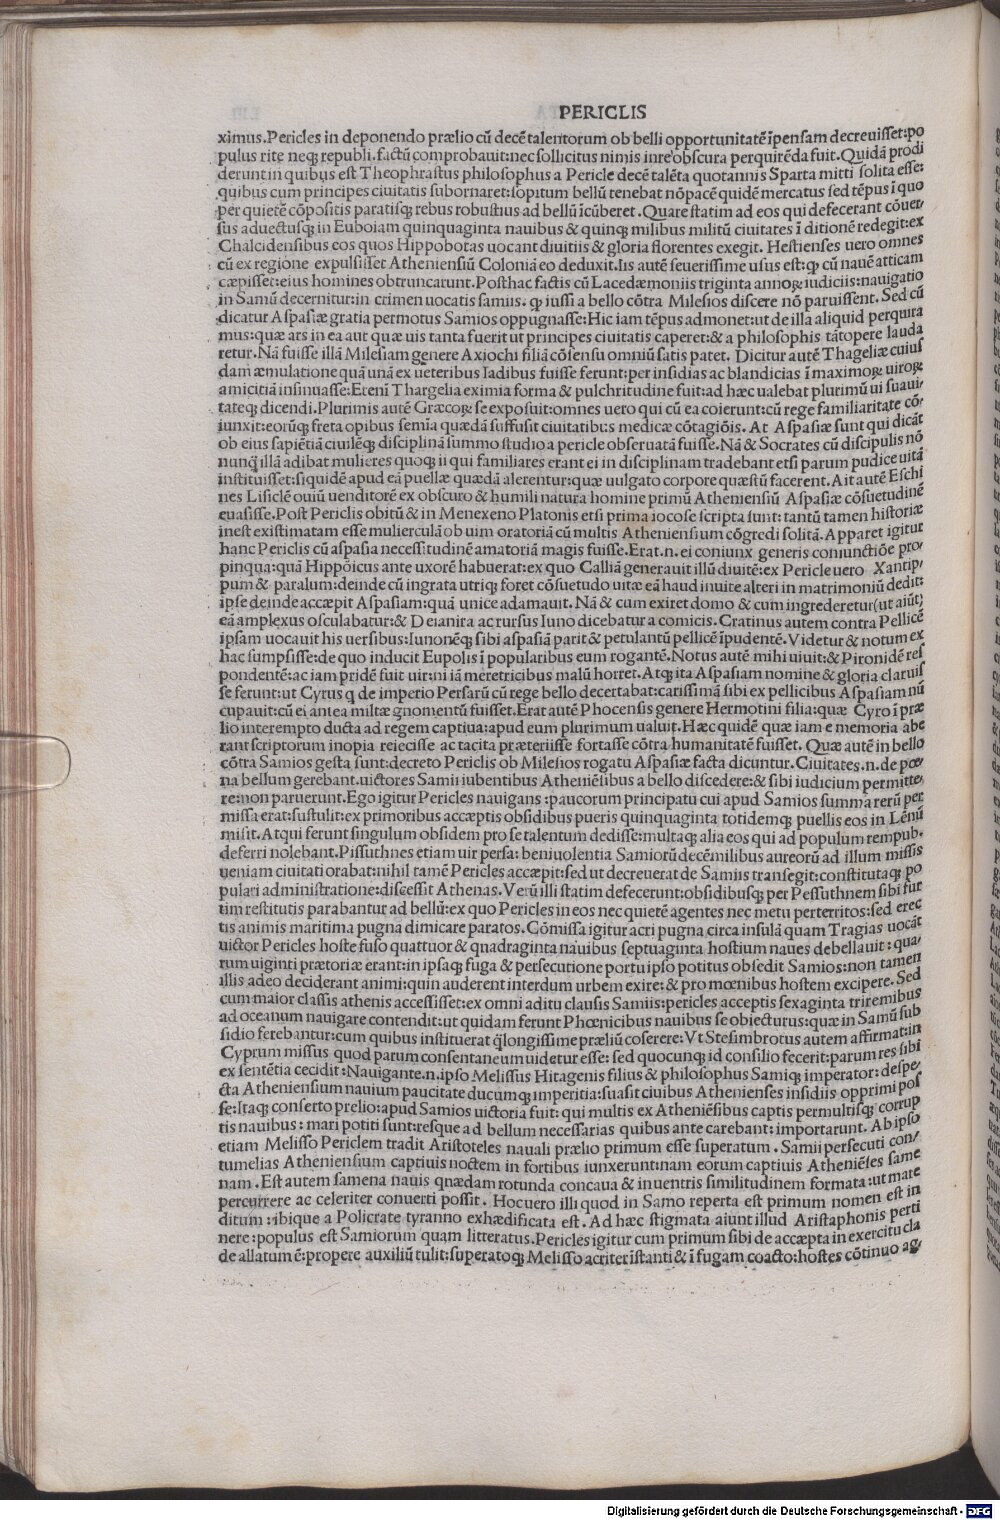 PERICLIS
ximus.Pericles in deponendo prælio cū decē talentorum ob belli opportunitatē īpensam decreuisset:po
pulus rite neqȝ republi.factū comprobauit:nec sollicitus nimis inre obscura perquirēda fuit.Quidā prodi
derunt in quibus est Theophrastus philosophus a Pericle decē talēta quotannis Sparta mitti solita esse:
quibus cum principes ciuitatis subornaret:sopitum bellū tenebat nō pacē quidē mercatus sed tēpus ī quo
per quietē cōpositis paratisqȝ rebus robustius ad bellū īcūberet.Quare statim ad eos qui defecerant cōuer/
sus aduectusqȝ in Euboiam quinquaginta nauibus & quinqȝ milibus militū ciuitates ī ditionē redegit:ex
Chalcidensibus eos quos Hippobotas uocant diuitiis & gloria florentes exegit. Hestienses uero omnes
cū ex regione expulsisset Atheniensiū Coloniā eo deduxit.Iis autē seuerissime usus est:ꝙ cū nauē atticam
cæpisset:eius homines obtruncarunt.Posthac factis cū Lacedæmoniis triginta annoꝝ iudiciis:nauigatio
in Samū decernitur:in crimen uocatis samiis. ꝙ iussi a bello cōtra Milesios discere nō paruissent. Sed cū
dicatur Aspasiæ gratia permotus Samios oppugnasse:Hic iam tēpus admonet:ut de illa aliquid perquira
mus:quæ ars in ea aut quæ uis tanta fuerit ut principes ciuitatis caperet:& a philosophis tātopere lauda
retur.Nā fuisse illā Milesiam genere Axiochi filiā cōsensu omniū satis patet. Dicitur autē Thageliæ cuius
dam æmulatione quā unā ex ueteribus Iadibus fuisse ferunt:per insidias ac blandicias ī maximoꝝ uiroꝝ
amicitiā insinuasse:Etenī Thargelia eximia forma & pulchritudine fuit:ad hæc ualebat plurimū ui suaui/
tateqȝ dicendi.Plurimis autē Græcoꝝ se exposuit:omnes uero qui cū ea coierunt:cū rege familiaritate cō/
iunxit:eorūqȝ freta opibus semia quædā suffusit ciuitatibus medicæ cōtagiōis. At Aspasiæ sunt qui dicāt
ob eius sapiētiā ciuilēqȝ disciplinā summo studio a pericle obseruatā fuisse. Nā & Socrates cū discipulis nō
nunqȝ illā adibat mulieres quoqȝ ii qui familiares erant ei in disciplinam tradebant etsi parum pudice uitā
instituisset:siquidē apud eā puellæ quædā alerentur:quæ uulgato corpore quæstū facerent.Ait autē Eschi
nes Lisiclē ouiū uenditorē ex obscuro & humili natura homine primū Atheniensiū Aspasiæ cōsuetudinē
euasisse.Post Periclis obitū & in Menexeno Platonis etsi prima iocose scripta sunt: tantū tamen historiæ
inest existimatam esse mulierculā ob uim oratoriā cū multis Atheniensium cōgredi solitā.Apparet igitur
hanc Periclis cū aspasia necessitudinē amatoriā magis fuisse.Erat.n.ei coniunx generis coniunctiōe pro/
pinqua:quā Hippōicus ante uxorē habuerat:ex quo Calliā generauit illū diuitē:ex Pericle uero Xantip/
pum & paralum:deinde cū ingrata utriqȝ foret cōsuetudo uitæ eā haud inuite alteri in matrimoniū dedit:
ipse deinde accæpit Aspasiam:quā unice adamauit. Nā & cum exiret domo & cum ingrederetur(ut aiūt)
eā amplexus osculabatur:& Deianira ac rursus Iuno dicebatur a comicis. Cratinus autem contra Pellicē
ipsam uocauit his uersibus:Iunonēqȝ sibi aspasiā parit & petulantū pellicē īpudentē.Videtur & notum ex
hac sumpsisse:de quo inducit Eupolis ī popularibus eum rogantē.Notus autē mihi uiuit:& Pironidē res
pondentē:ac iam pridē fuit uir:ni iā meretricibus malū horret.Atqȝ ita Aspasiam nomine & gloria claruis
se ferunt:ut Cyrus q̨ de imperio Persarū cū rege bello decertabat:carissimā sibi ex pellicibus Aspasiam nū
cupauit:cū ei antea miltæ gnomentū fuisset.Erat autē Phocensis genere Hermotini filia:quæ Cyro ī præ
lio interempto ducta ad regem captiua:apud eum plurimum ualuit.Hæc quidē quæ iam e memoria abe
rant scriptorum inopia reiecisse ac tacita præteriisse fortasse cōtra humanitatē fuisset. Quæ autē in bello
cōtra Samios gesta sunt:decreto Periclis ob Milesios rogatu Aspasiæ facta dicuntur.Ciuitates.n.de pœ
na bellum gerebant.uictores Samii iubentibus Atheniēsibus a bello discedere:& sibi iudicium permitte,
re:non paruerunt.Ego igitur Pericles nauigans :paucorum principatu cui apud Samios summa rerū per
missa erat:sustulit:ex primoribus accæptis obsidibus pueris quinquaginta totidemqȝ puellis eos in Lēnū
misit.Atqui ferunt singulum obsidem pro se talentum dedisse:multaqȝ alia eos qui ad populum rempub.
deferri nolebant.Pissuthnes etiam uir persa: beniuolentia Samiorū decēmilibus aureorū ad illum missis
ueniam ciuitati orabat:nihil tamē Pericles accæpit:sed ut decreuerat de Samiis transegit:constitutaqȝ po
pulari administratione:discessit Athenas.Verū illi statim defecerunt:obsidibusqȝ per Pessuthnem sibi fur
tim restitutis parabantur ad bellū:ex quo Pericles in eos nec quietē agentes nec metu perterritos:sed erec
tis animis maritima pugna dimicare paratos.Cōmissa igitur acri pugna circa insulā quam Tragias uocāt
uictor Pericles hoste fuso quattuor & quadraginta nauibus septuaginta hostium naues debellauit : qua/
rum uiginti prætoriæ erant:in ipsaqȝ fuga & persecutione portu ipso potitus obsedit Samios:non tamen
illis adeo deciderant animi:quin auderent interdum urbem exire:& pro mœnibus hostem excipere. Sed
cum maior classis athenis accessisset:ex omni aditu clausis Samiis:pericles acceptis sexaginta triremibus
ad oceanum nauigare contendit:ut quidam ferunt Phœnicibus nauibus se obiecturus:quæ in Samū sub
sidio ferebantur:cum quibus instituerat q̄longissime præliū coserere:Vt Stesimbrotus autem affirmat:in
Cyprum missus quod parum consentaneum uidetur esse: sed quocunqȝ id consilio fecerit:parum res sibi
ex sentētia cecidit :Nauigante.n.ipso Melissus Hitagenis filius & philosophus Samiqȝ imperator: despe/
cta Atheniensium nauium paucitate ducumqȝ imperitia:suasit ciuibus Athenienses insidiis opprimi pos
se:Itaqȝ conserto prelio:apud Samios uictoria fuit: qui multis ex Atheniēsibus captis permultisqȝ corrup
tis nauibus : mari potiti sunt:resque ad bellum necessarias quibus ante carebant: importarunt. Ab ipso
etiam Melisso Periclem tradit Aristoteles nauali prælio primum esse superatum . Samii persecuti con/
tumelias Atheniensium captiuis noctem in fortibus iunxerunt:nam eorum captiuis Atheniēses same
nam . Est autem samena nauis quædam rotunda concaua & inuentris similitudinem formata :ut mare
percurrere ac celeriter conuerti possit. Hocuero illi quod in Samo reperta est primum nomen est in
ditum :ibique a Policrate tyranno exhædificata est. Ad hæc stigmata aiunt illud Aristaphonis perti
nere :populus est Samiorum quam litteratus.Pericles igitur cum primum sibi de accæpta in exercitu cla
de allatum ē:propere auxiliū tulit:superatoqȝ Melisso acriter īstanti & ī fugam coacto:hostes cōtinuo ag/
Digitalisierung gefördert durch die Deutsche Forschungsgemeinschaft - DFG